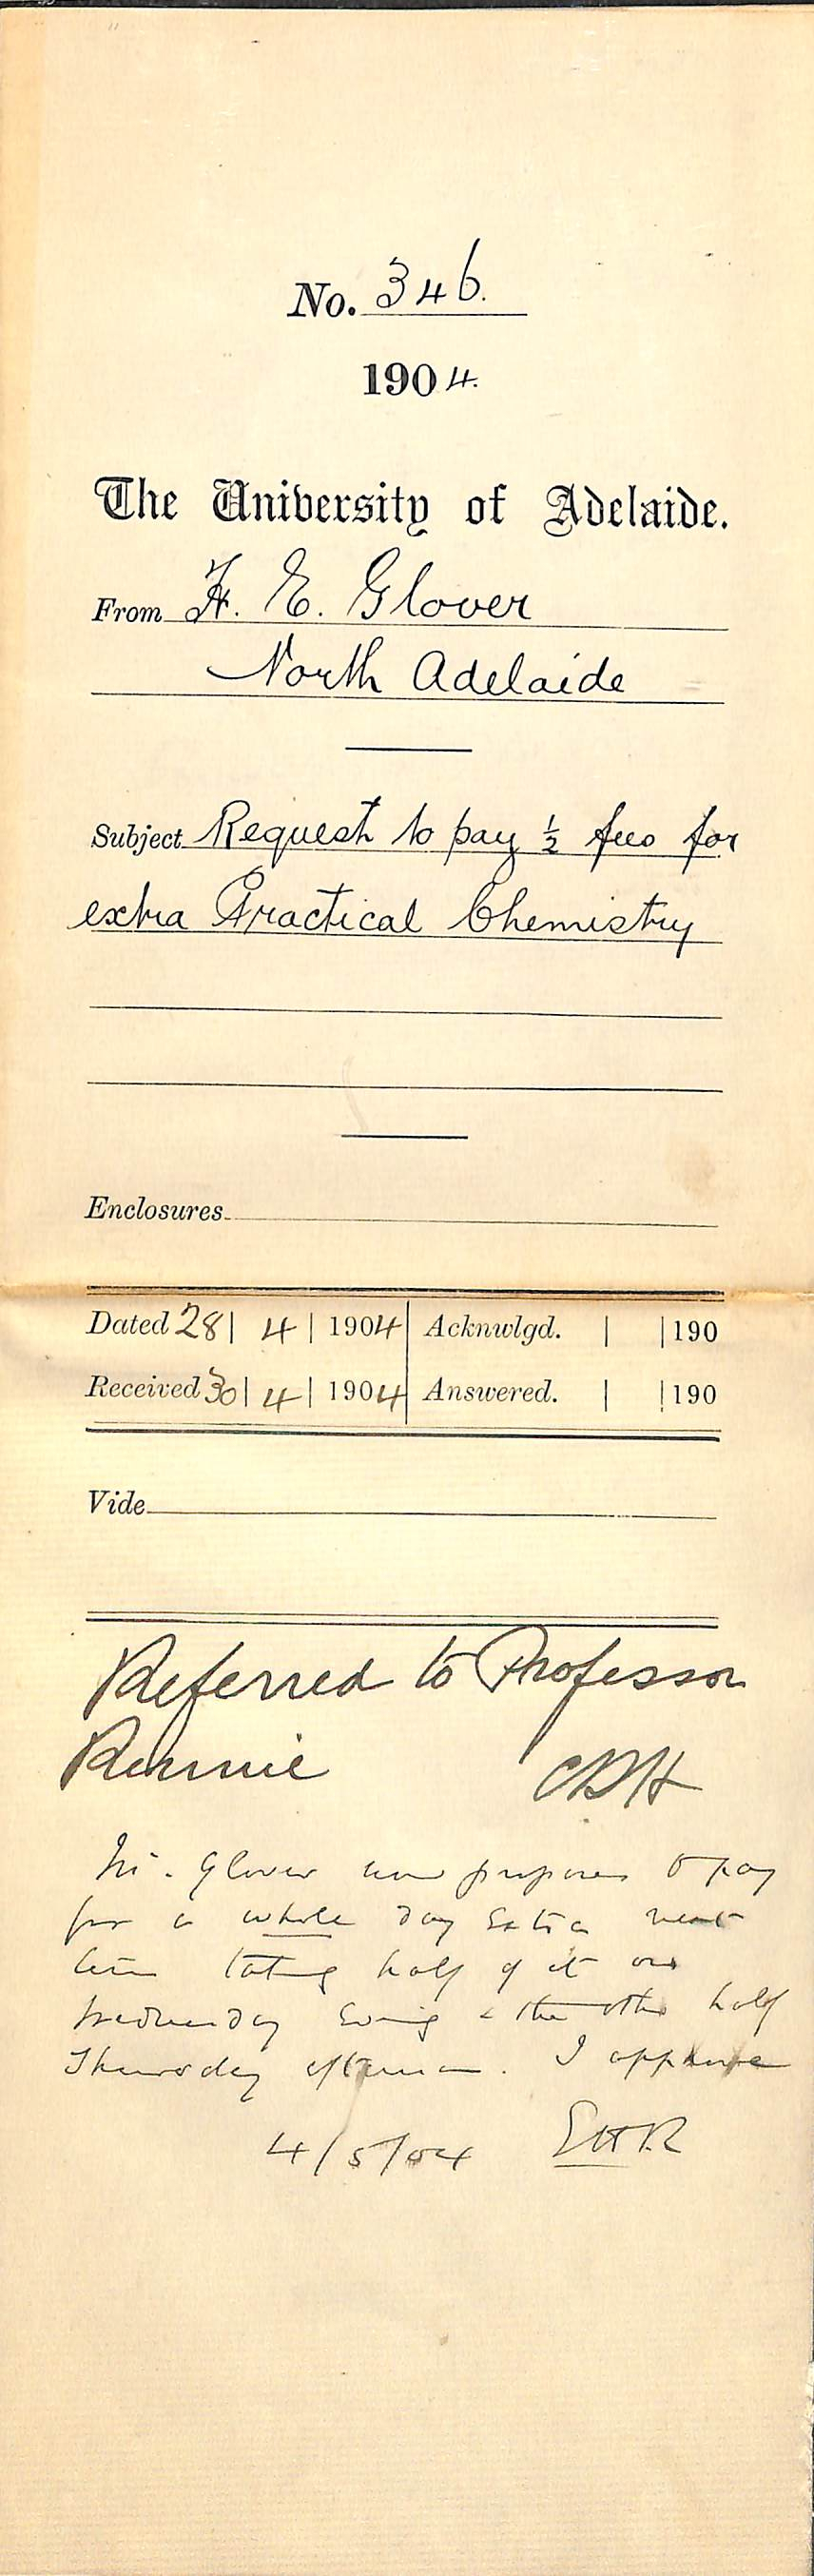 No. 346.
1904.
The University of Adelaide.
From H. E. Glover
North Adelaide
Subject Request to pay ½ fees for
extra Practical Chemistry
Enclosures
Dated 28 | 4 | 1904 Acknwlgd. | | 190
Received 30 | 4 | 1904 Answered. | | 190
Vide
Referred to Professor
Rennie CDH
Mr. Glover now proposes to pay
for a whole day extra next
term taking half of it on
Wednesday evening & the other half
Thursday afternoon. I approve
4/5/04 EHR